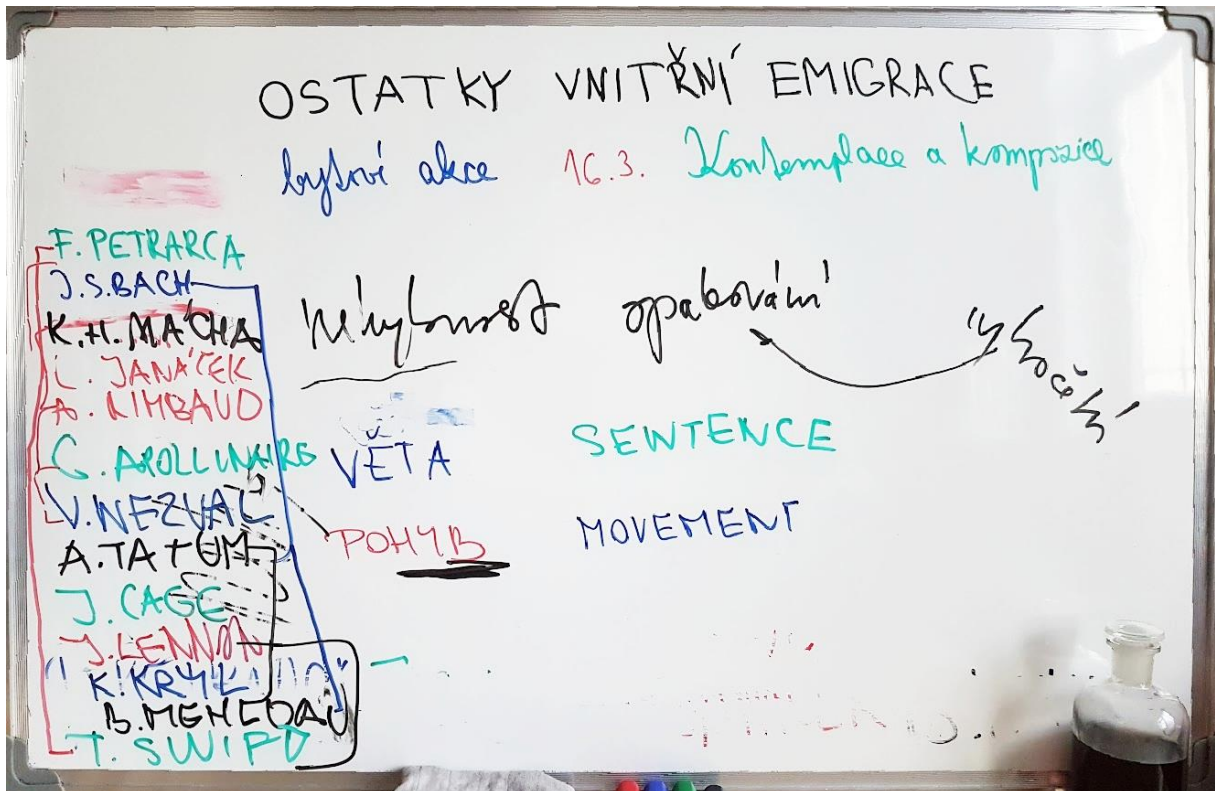 OSTATKY VNITŘNÍ EMIGRACE
bytové akce 16.3. Kontemplace a kompozice
F. PETRARCA
J.S.BACH
K.H.MÁCHA
L. JANÁČEK
A. RIMBAUD
G. APOLLINAIRE
V.NEZVAL
A.TATUM
J. CAGE
J.LENNON
K.KRYL
T. SWIFT
opakování
VĚTA SEWTENCE
POHYB MOVEMENT